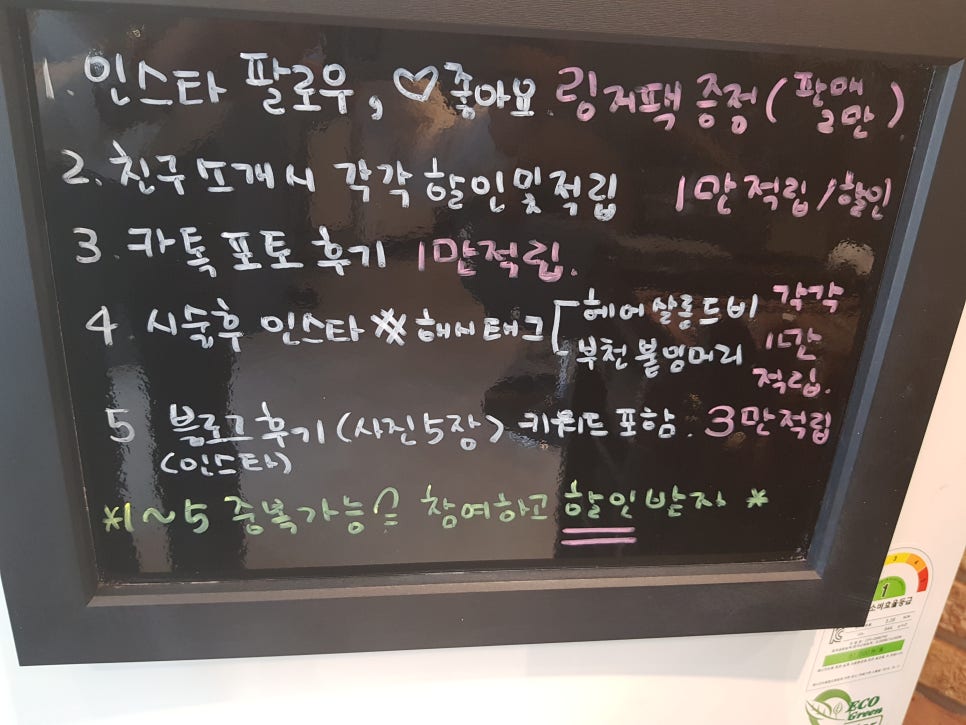 1. 인스타 팔로우, ♡좋아요. 링거팩 증정 (판매 2만)
2. 친구소개시 각각 할인및적립 1만적립/할인
3. 카톡 포토 후기 1만적립.
4 시술후 인스타 #해시태그 [헤어살롱드비 각각
부천붙임머리 1만
적립.
5 블로그후기(사진5장) 키워드포함. 3만적립
(인스타)
*1~5 중복가능 참여하고 할인받자 *
1
소비효율등급
ECO
Green